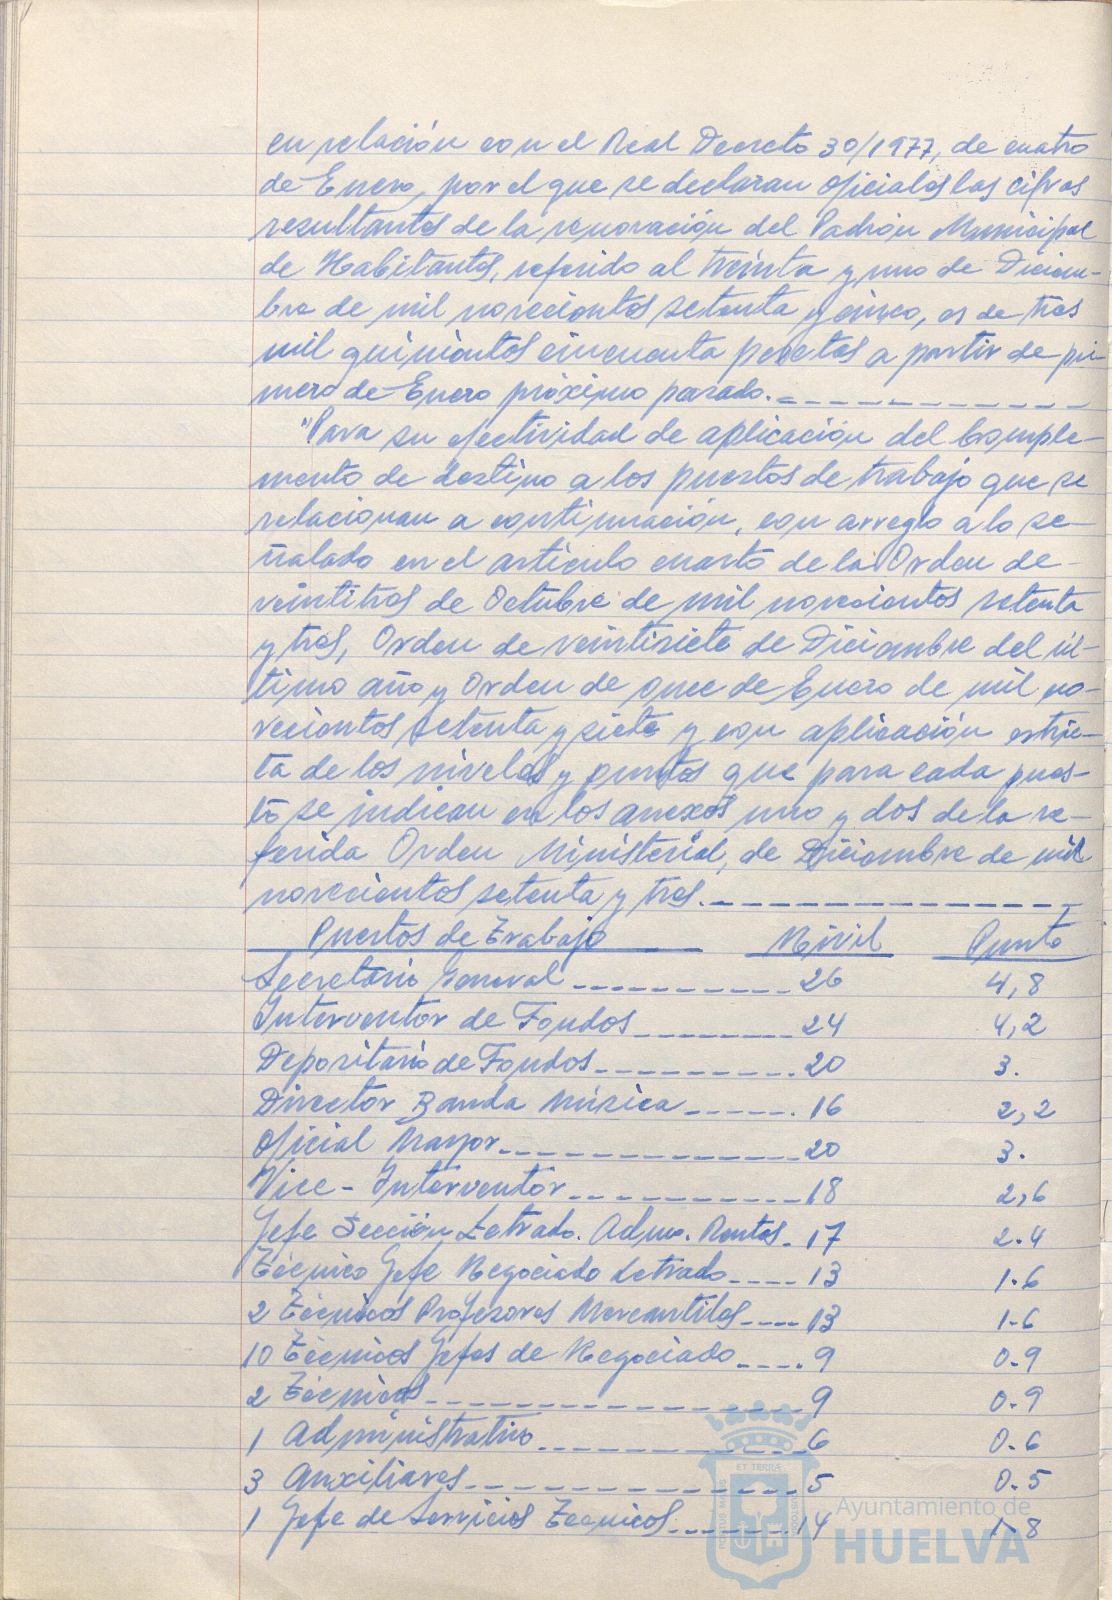 en relación con el Real Decreto 30/1977, de cuatro
de Enero, por el que se declaran oficiales las cifras
resultantes de la renovación del Padrón Municipal
de Habitantes, referido al treinta y uno de Diciem-
bre de mil novecientos setenta y cinco, es de tres
mil quinientos cincuenta pesetas a partir de pri-
mero de Enero próximo pasado.
"Para su efectividad de aplicación del Comple-
mento de destino a los puestos de trabajo que se
relacionan a continuación, con arreglo a lo se-
ñalado en el artículo cuarto de la Orden de
veintitres de Octubre de mil novecientos setenta
y tres, Orden de veintisiete de Diciembre del úl-
timo año y Orden de once de Enero de mil no-
vecientos setenta y siete y con aplicación estric-
ta de los niveles y puntos que para cada pues-
to se indican en los anexos uno y dos de la re-
ferida Orden Ministerial, de Diciembre de mil
novecientos setenta y tres.
Puestos de Trabajo Nivil Punto
Secretario General 26 4,8
Interventor de Fondos 24 4,2
Depositario de Fondos 20 3.
Director Banda Música 16 2,2
Oficial Mayor 20 3.
Vice-Interventor 18 2,6
Jefe Sección Letrado. Admo. Rentas 17 2.4
Técnico Jefe Negociado Letrado 13 1.6
2 Técnicos Profesores Mercantiles 13 1-6
10 Técnicos Jefes de Negociado 9 0.9
2 Técnicos 9 0.9
1 Administrativo 6 0.6
3 Auxiliares 5 0.5
1 Jefe de Servicios Técnicos 14 1-8
ET TERRÆ
PORTUS MARIS
CUSTODIA
Ayuntamiento de
HUELVA